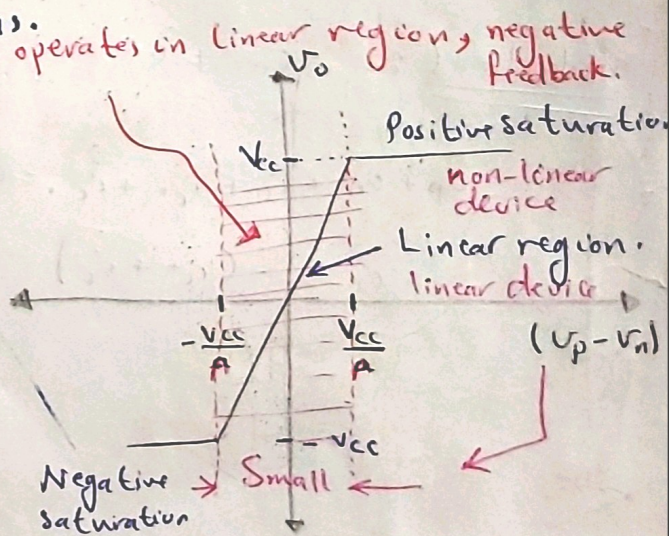 operates in linear region, negative
feedback.
Vo
Positive saturation
Vcc
non-linear
device
Linear region.
linear device
-Vcc/A
Vcc/A
(Vp - Vn)
- Vcc
Negative
saturation
Small